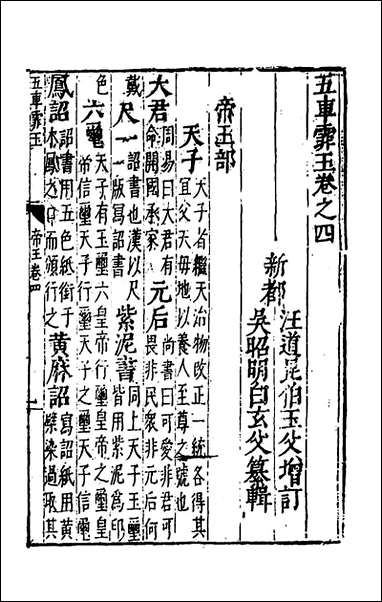 五車霏玉卷之四
汪道昆伯玉父增訂
新都
吳昭明白玄父纂輯
帝王部
天子 天子者繼天治物改正一統各得其
宜父天母地以養人至尊之號也
大君 周易曰大君有
命開國承家 元后 尚書曰可愛非君可
畏非民衆非元后何
戴 尺一 詔書也漢以尺
一版寫詔書 紫泥書 同上天子玉璽
皆用紫泥爲印
色 六璽 天子有玉璽六皇帝行璽皇帝之璽皇
帝信璽天子行璽天子之璽天子信璽
鳳詔 詔書用五色紙銜于
木鳳之口而頒行之 黃麻詔 寫詔紙用黃
檗染過取其
五車霏玉 帝王卷四 一